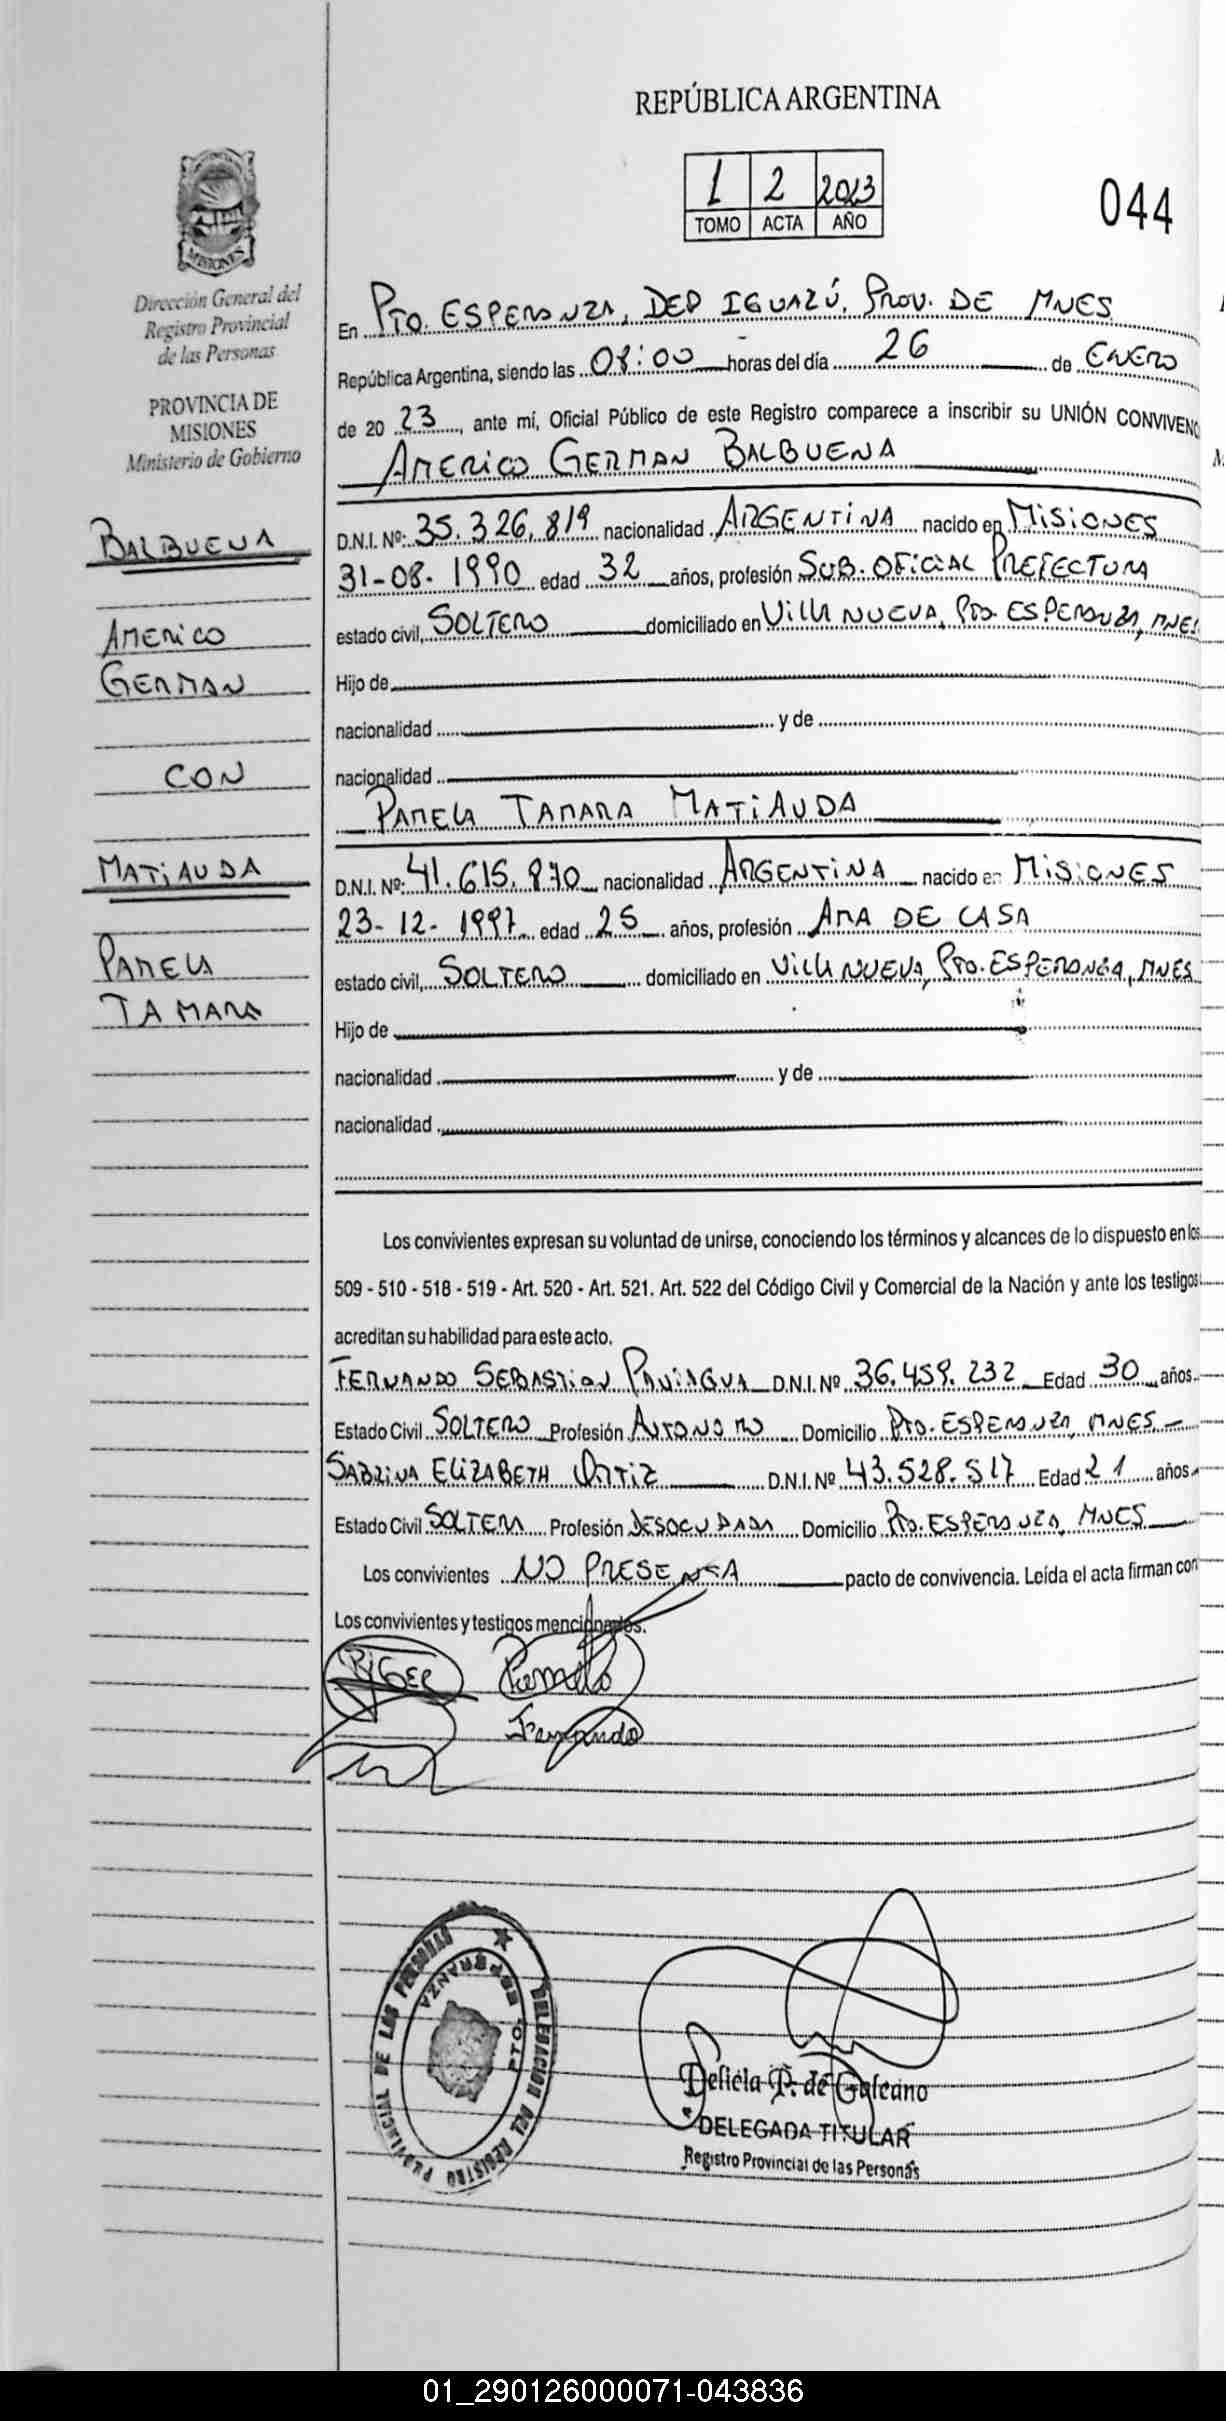 REPÚBLICA ARGENTINA
1 2 2023
TOMO ACTA AÑO
044
MISIONES
Dirección General del
Registro Provincial
de las Personas
PROVINCIA DE
MISIONES
Ministerio de Gobierno
BALBUENA
AMERICO
GERMAN
CON
MATIAUDA
PAMELA
TAMARA
En PTO. ESPERANZA, DEP IGUAZÚ, PROV. DE MNES
República Argentina, siendo las 08:00 horas del día 26 de ENERO
de 20 23, ante mí, Oficial Público de este Registro comparece a inscribir su UNIÓN CONVIVENC
AMERICO GERMAN BALBUENA
D.N.I. Nº: 35.326.819 nacionalidad ARGENTINA nacido en MISIONES
31-08-1990 edad 32 años, profesión SUB-OFICIAL PREFECTURA
estado civil, SOLTERO domiciliado en VILLA NUEVA, PTO. ESPERANZA, MNES
Hijo de
nacionalidad y de
nacionalidad
PAMELA TAMARA MATIAUDA
D.N.I. Nº: 41.615.870 nacionalidad ARGENTINA nacido en MISIONES
23-12-1997 edad 25 años, profesión AMA DE CASA
estado civil, SOLTERO domiciliado en VILLA NUEVA, PTO. ESPERANZA, MNES
Hijo de
nacionalidad y de
nacionalidad
Los convivientes expresan su voluntad de unirse, conociendo los términos y alcances de lo dispuesto en los
509 - 510 - 518 - 519 - Art. 520 - Art. 521. Art. 522 del Código Civil y Comercial de la Nación y ante los testigos
acreditan su habilidad para este acto.
FERNANDO SEBASTIAN PANIAGUA D.N.I. Nº 36.459.232 Edad 30 años.
Estado Civil SOLTERO Profesión Domicilio PTO. ESPERANZA, MNES
SABRINA ELIZABETH ORTIZ D.N.I. Nº 43.528.517 Edad 21 años
Estado Civil SOLTERA Profesión DESOCUPADA Domicilio PTO. ESPERANZA, MNES
Los convivientes NO PRESENTA pacto de convivencia. Leída el acta firman con
Los convivientes y testigos mencionados.
Pamela
Fernando
DELEGACION DEL REGISTRO PROVINCIAL DE LAS PERSONAS
PTO. ESPERANZA
Delicia P. de Galeano
DELEGADA TITULAR
Registro Provincial de las Personas
01_290126000071-043836